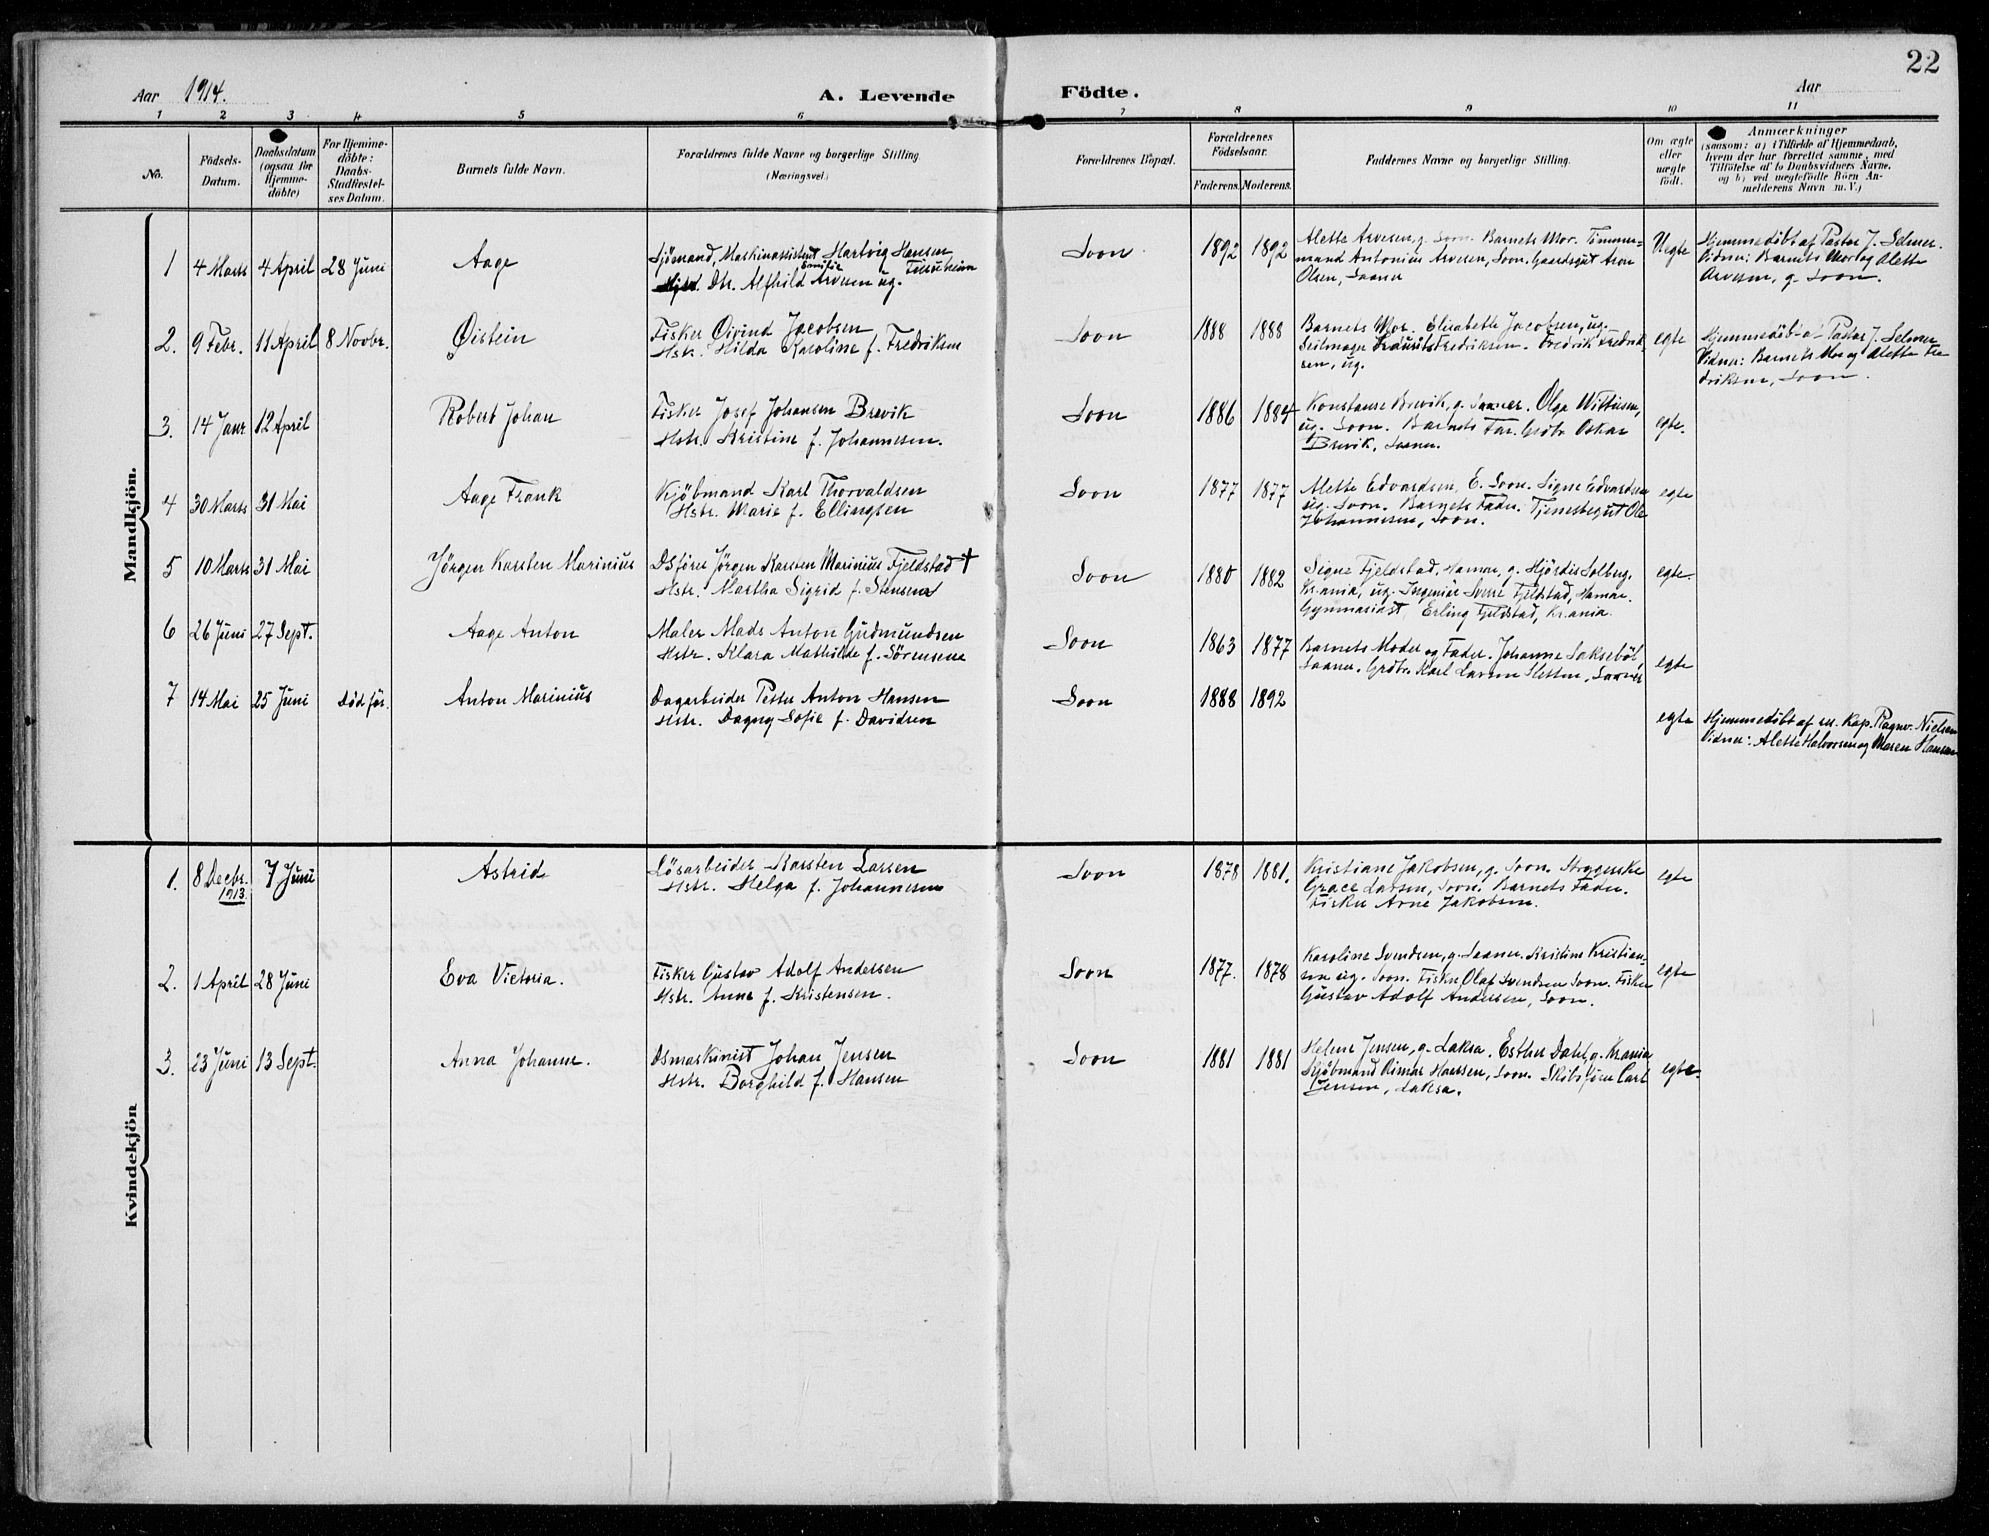 22
Aar 1914.
A. Levende Födte.
Aar
1 2 3 4 5 6 7 8 9 10 11
No.
Födsels-Datum.
Daabsdatum (ogsaa for Hjemme-döbte)
For Hjemme-döbte: Daabs-Stadfæstel-ses Datum.
Barnets fulde Navn.
Forældrenes fulde Navne og borgerlige Stilling. (Næringsvei.)
Forældrenes Bopæl.
Forældrenes Födselsaar.
Faderens. Moderens.
Faddernes Navne og borgerlige Stilling.
Om ægte eller uægte födt.
Anmærkninger
(saasom: a) i Tilfælde af Hjemmedaab,
hvem der har forrettet samme, med
Tilföielse af to Daabsvidners Navne,
og b) ved uægtefödte Börn An-
melderens Navn m. V.)
Mandkjön.
1 4 Marts 4 April 28 Juni Aage
Sjömand, Maskinassistent Hartvig Hansen
Dtr. Alfhild Emilie Arvesen ug.
Soon 1892 1892
Alette Arvesen, g. Soon. Barnets Mor. Tömmer-
mand Antonius Arvesen, Soon. Gaardsgut Aron
Olsen, Saaner
Uegte
Hjemmedöbt af Pastor J. Selmer.
Vidner: Barnets Mor og Alette
Arvesen, g. Soon.
2. 9 Febr. 11 April 8 Novbr. Øistein
Fisker Öivind Jacobsen
Hstr. Hilda Karoline f. Fredriksen
Soon 1888 1888
Barnets Mor. Elisabeth Jacobsen, ug.
Seilmager Laurits Fredriksen. Fredrik Fredrik-
sen, ug.
egte
Hjemmedöbt af Pastor J. Selmer
Vidner: Barnets Mor og Alette Fre
driksen, Soon.
3. 14 Janr 12 April Robert Johan
Fisker Josef Johansen Brevik
Hstr. Kristine f. Johannesen.
Soon 1886 1884
Konstanse Brevik, g. Saaner. Olga Wittusen,
ug. Soon. Barnets Far. Grdbr. Oskar
Brevik, Saaner.
egte.
4 30 Marts 31 Mai Aage Frank
Kjöbmand Karl Thorvaldsen
Hstr. Marie f. Ellingsen
Soon 1877 1877
Alette Edvardsen, E. Soon. Signe Edvardsen
ug. Soon. Barnets Fader. Tjenestegut Ole
Johannesen, Soon.
egte
5 10 Marts 31 Mai Jörgen Karsten Marinius
DSförer Jörgen Karsten Marinius Fjeldstad †
Hstr. Martha Sigrid f. Stensend
Soon 1880 1882
Signe Fjeldstad, Hamar, g. Hjördis Solberg,
Kr.ania, ug. Ingeniör Sverre Fjeldstad, Hamar.
Gymnasiast Erling Fjeldstad, Kr.ania.
egte.
6 26 Juni 27 Sept. Aage Anton
Maler Mads Anton Gudmundsen
Hstr. Klara Mathilde f. Sörensen
Soon 1863 1877
Barnets Moder og Fader. Johanne Lakseböl,
Saaner. Grdbr. Karl Larsen Sletten, Saaner
egte
7 14 Mai 25 Juni Död för. Anton Marinius
Dagarbeider Petter Anton Hansen
Hstr. Dagny Sofie f. Davidsen
Soon 1888 1892
egte
Hjemmedöbt af res. Kap. Ragnv. Nielsen
Vidner: Alette Halvorsen og Maren Hansen
Kvindekjön
1. 8 Decbr. 1913 7 Juni Astrid
Lösarbeider Karsten Larsen
Hstr. Helga f. Johannesen
Soon 1878 1881.
Kristiane Jakobsen, g. Soon. Strygerske
Grace Larsen, Soon. Barnets Fader.
Fisker Arne Jakobsen.
egte
2. 1 April 28 Juni Eva Victoria.
Fisker Gustav Adolf Andersen
Hstr. Anna f. Kristensen.
Soon 1877. 1878
Karoline Svendsen, g. Saaner. Kristine Kristian-
sen ug. Soon. Fisker Olaf Svendsen Soon. Fisker
Gustav Adolf Andersen, Soon.
egte
3. 23 Juni 13 Sept. Anna Johanne.
Dsmaskinist Johan Jensen
Hstr. Borghild f. Hansen
Soon 1881 1881
Helene Jensen, g. Laksa. Esther Dahl, g. Kr.ania
Kjöbmand Hansen, Soon. Skibsförer Carl
Jensen, Laksa.
egte.